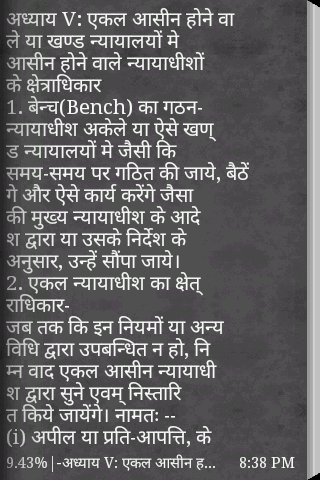 अध्याय V: एकल आसीन होने वा
ले या खण्ड न्यायालयों मे
आसीन होने वाले न्यायाधीशों
के क्षेत्राधिकार
1. बेन्च(Bench) का गठन-
न्यायाधीश अकेले या ऐसे खण्
ड न्यायालयों मे जैसी कि
समय-समय पर गठित की जाये, बैठें
गे और ऐसे कार्य करेंगे जैसा
की मुख्य न्यायाधीश के आदे
श द्वारा या उसके निर्देश के
अनुसार, उन्हें सौंपा जाये।
2. एकल न्यायाधीश का क्षेत्
राधिकार-
जब तक कि इन नियमों या अन्य
विधि द्वारा उपबन्धित न हो, नि
म्न वाद एकल आसीन न्यायाधी
श द्वारा सुने एवम् निस्तारि
त किये जायेंगे। नामतः --
(i) अपील या प्रति-आपत्ति, के
9.43% |-अध्याय V: एकल आसीन ह... 8:38 PM